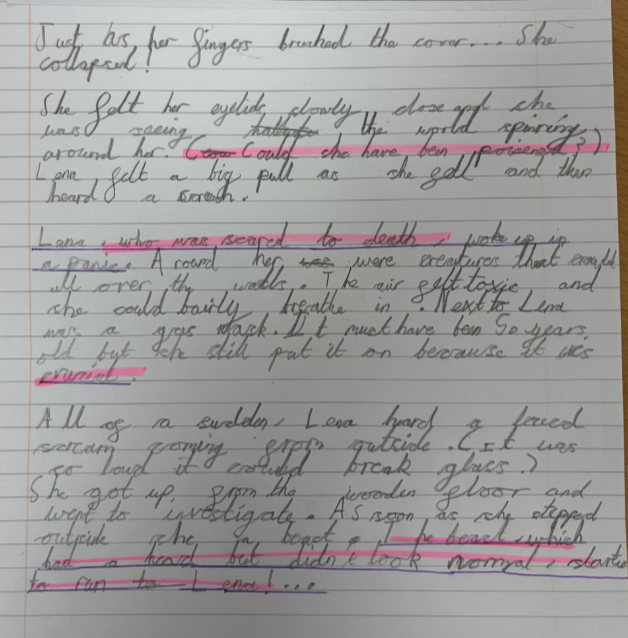 Just as her fingers brushed the cover... She
collapsed!
She felt her eyelids slowly close and she
was seeing the world spinning
around her. (Could she have been poisoned?)
Lena felt a big pull as she fell and then
heard a
Lena, who was scared to death, woke up in
a panic. Around her were creatures that
all over the walls. The air felt toxic and
she could bairly breathe in. Next to Lena
was a gas mask. It must have been 50 years
old but she still put it on because it was
crucial.
All of a sudden, Lena heard a
scream coming from outside. (It was
so loud it break glass.)
She got up from the wooden floor and
went to investigate. As soon as she stepped
outside she a beast. The beast, which
had a but didn't look normal,
to ran to Lena!...